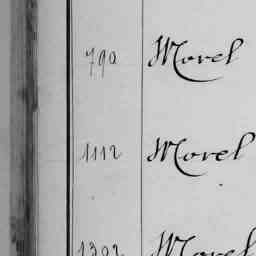 790 Morel
1112 Morel
1302 Morel